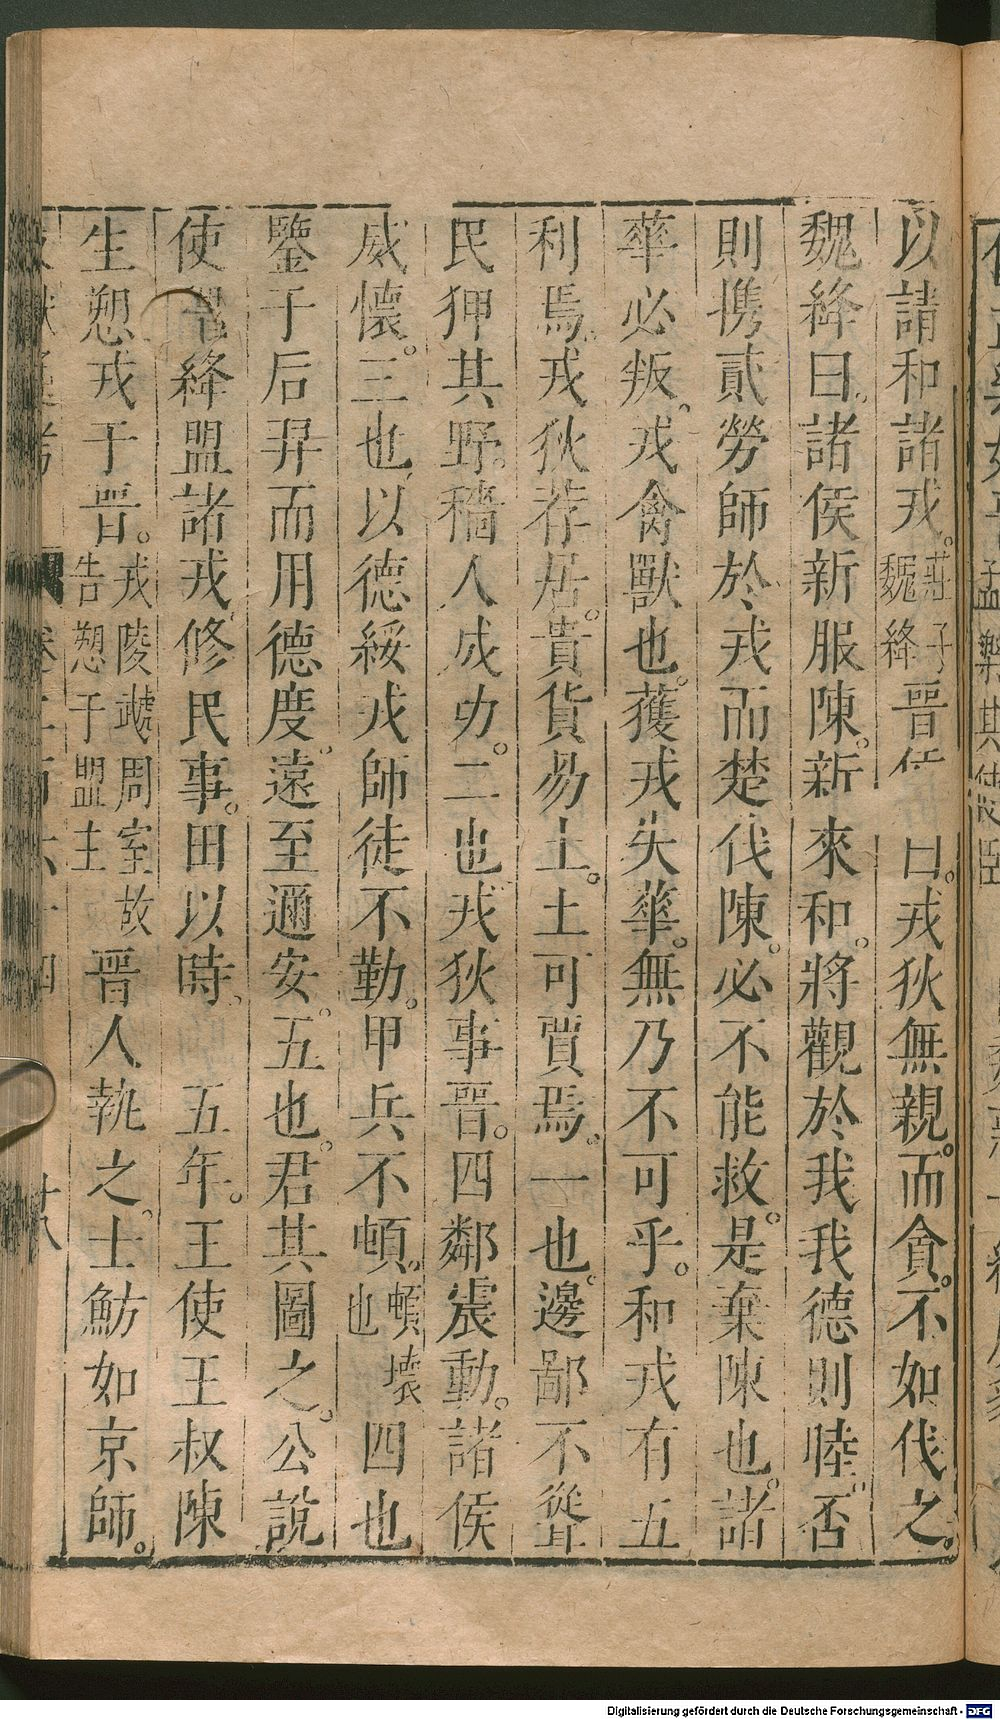 以請和諸戎。莊子魏絳晉侯曰。戎狄無親。而貪。不如伐之。
魏絳曰。諸侯新服陳。新來和。將觀於我我德則睦。否
則攜貳勞師於戎而楚伐陳。必不能救。是棄陳也。諸
華必叛。戎禽獸也。獲戎失華。無乃不可乎。和戎有五
利焉。戎狄荐居。貴貨易土。土可賈焉。一也。邊鄙不聳
民狎其野。穡人成功。二也戎狄事晉。四鄰振動。諸侯
威懷。三也以德綏戎師徒不勤。甲兵不頓。頓壞也四也
鑒于后羿而用德度。遠至邇安。五也。君其圖之。公說
使魏絳盟諸戎。修民事。田以時、五年。王使王叔陳
生愬戎于晉。戎陵虣周室故告愬于盟主晉人執之。士魴如京師。
Digitalisierung gefördert durch die Deutsche Forschungsgemeinschaft - DFG